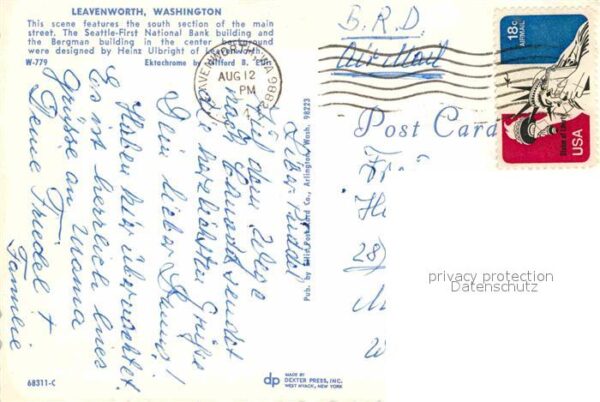 LEAVENWORTH, WASHINGTON
This scene features the south section of the main
street. The Seattle-First National Bank building and
the Bergman building in the center background
were designed by Heinz Ulbright of Leavenworth.
W-779 Ektachrome by Clifford B. Ellis
B.R.D.
Air Mail
LEAVENWORTH, WA
AUG 12
PM
98826
18c
AIRMAIL
Statue of Liberty
USA
Post Card
Pub. by Ellis Post Card Co., Arlington, Wash. 98223
Auf dem Wege
nach Canada sendet
die herzlichsten Grüße
Dein lieber
Haben hier übernachtet.
Es ist herrlich
Grüsse an Mama
Deine Friedel +
Familie
28
privacy protection
Datenschutz
68311-C
dp
MADE BY
DEXTER PRESS, INC.
WEST NYACK, NEW YORK